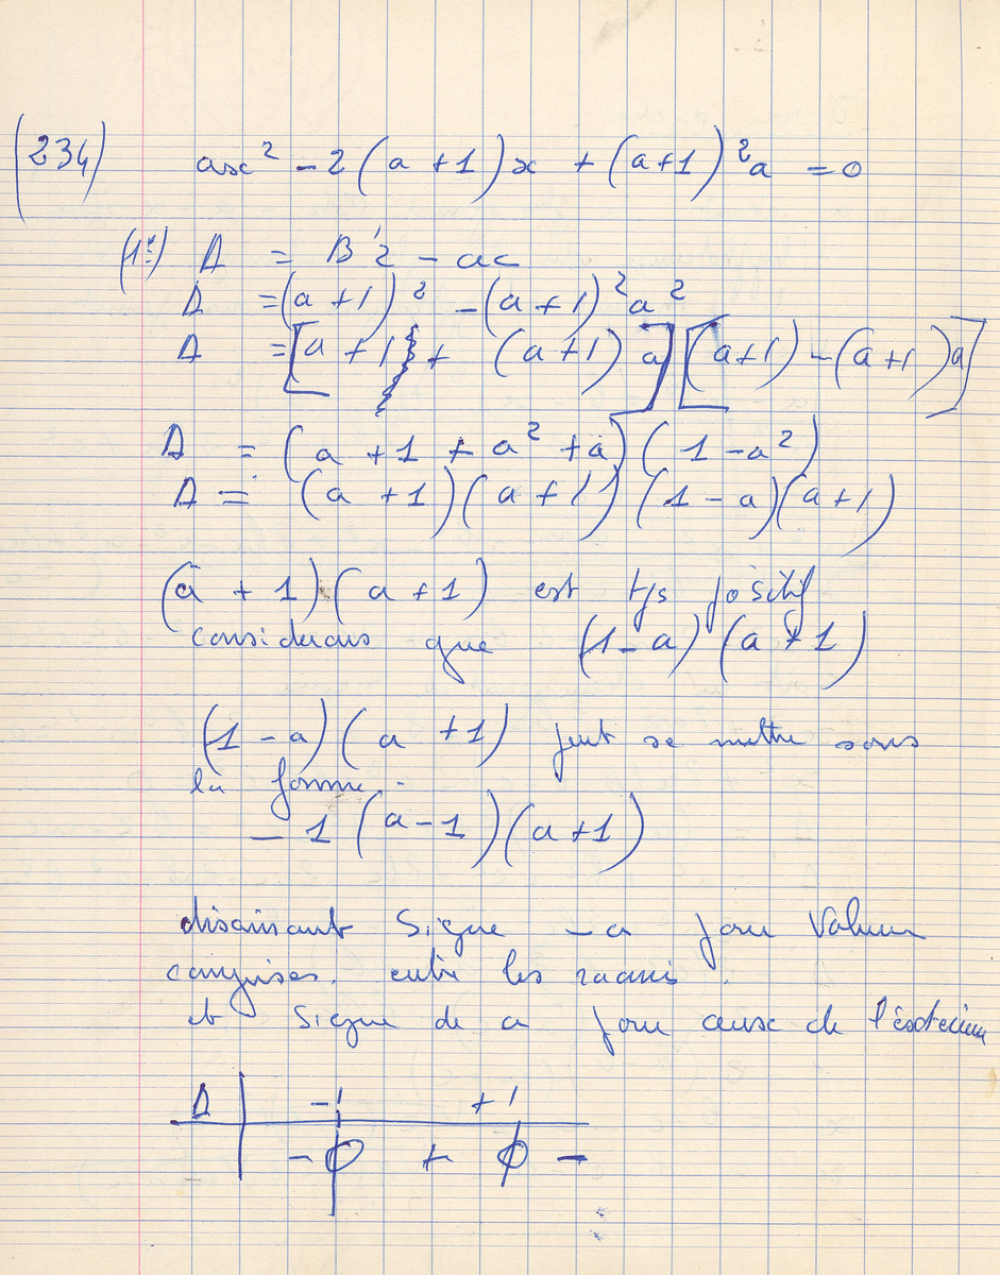 (234) ax² - 2(a+1)x + (a+1)²a = 0
(1°) Δ = B'2 - ac
Δ = (a+1)² - (a+1)²a²
Δ = [a+1 + (a+1)a][(a+1) - (a+1)a]
Δ = (a+1+a²+a)(1-a²)
Δ = (a+1)(a+1)(1-a)(a+1)
(a+1)(a+1) est tjs positif
considerons que (1-a)(a+1)
(1-a)(a+1) peut se mettre sous
la forme
-1(a-1)(a+1)
signe -a pour valeurs
comprises entre les racines.
et signe de a pour ceux de l'exterieur
Δ -1 +1
- 0 + 0 -